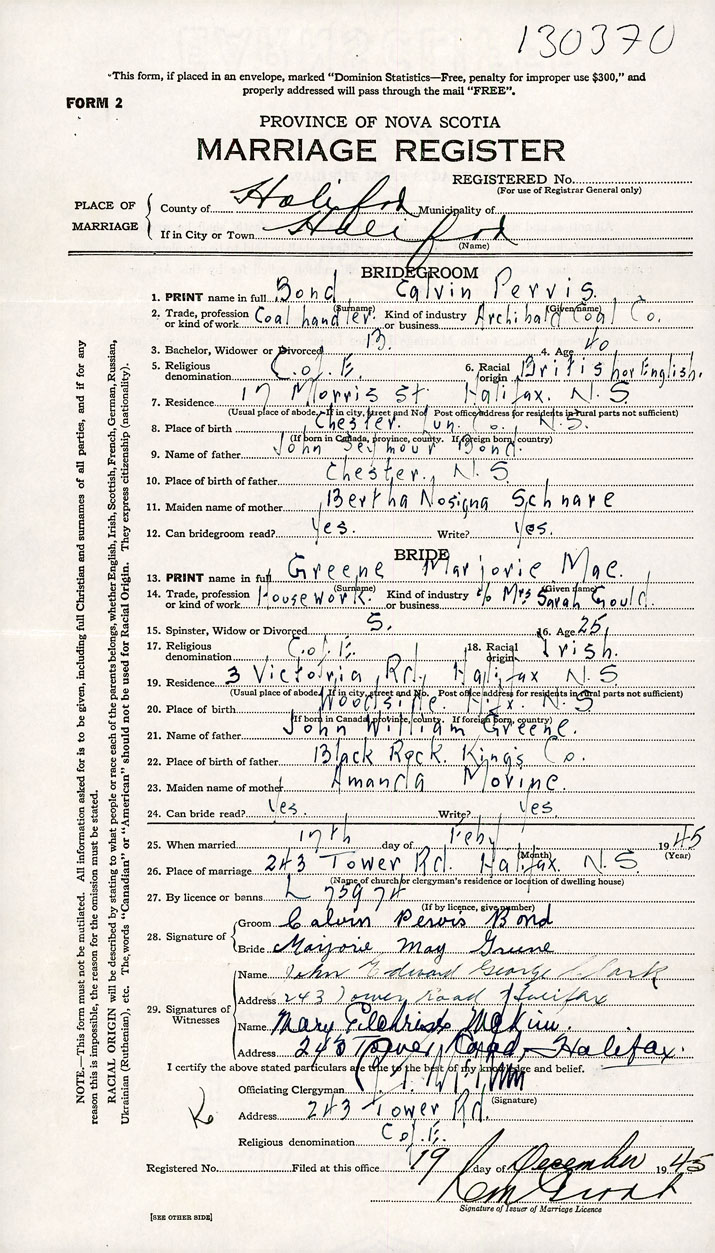 130370
"This form, if placed in an envelope, marked "Dominion Statistics—Free, penalty for improper use $300," and
properly addressed will pass through the mail "FREE".
FORM 2
PROVINCE OF NOVA SCOTIA
MARRIAGE REGISTER
REGISTERED No.
(For use of Registrar General only)
PLACE OF MARRIAGE
County of Halifax Municipality of
If in City or Town Halifax
(Name)
BRIDEGROOM
1. PRINT name in full Bond Calvin Pervis.
(Surname) (Given name)
2. Trade, profession or kind of work Coal handler. Kind of industry or business Archibald Coal Co.
3. Bachelor, Widower or Divorced B. 4. Age 40
5. Religious denomination C. of E. 6. Racial origin British or English.
7. Residence 17 Morris St. Halifax. N.S.
(Usual place of abode. If in city, street and No. Post office address for residents in rural parts not sufficient)
8. Place of birth Chester. Lun. Co. N.S.
(If born in Canada, province, county. If foreign born, country)
9. Name of father John Seymour Bond.
10. Place of birth of father Chester, N.S.
11. Maiden name of mother Bertha Nosigna Schnare
12. Can bridegroom read? Yes. Write? Yes.
BRIDE
13. PRINT name in full Greene Marjorie Mae.
(Surname) (Given name)
14. Trade, profession or kind of work Housework. Kind of industry or business % Mrs Sarah Gould.
15. Spinster, Widow or Divorced S. 16. Age 25
17. Religious denomination C. of E. 18. Racial origin Irish.
19. Residence 3 Victoria Rd, Halifax N.S
(Usual place of abode. If in city, street and No. Post office address for residents in rural parts not sufficient)
20. Place of birth Woodside. Hfx. N.S
(If born in Canada, province, county. If foreign born, country)
21. Name of father John William Greene.
22. Place of birth of father Black Rock. Kings Co.
23. Maiden name of mother Amanda Morine.
24. Can bride read? Yes. Write? Yes.
25. When married 17th day of Feby 1945
(Month) (Year)
26. Place of marriage 243 Tower Rd. Halifax. N.S.
(Name of church or clergyman's residence or location of dwelling house)
27. By licence or banns L 75974
(If by licence, give number)
28. Signature of
Groom Calvin Pervis Bond
Bride Marjorie May Greene
29. Signatures of Witnesses
Name John Edward George
Address 243 Tower Road Halifax
Name Mary
Address 243 Tower Road, Halifax.
I certify the above stated particulars are true to the best of my knowledge and belief.
Officiating Clergyman
(Signature)
Address 243 Tower Rd.
Religious denomination C. of E.
Registered No. Filed at this office 19 day of December 1945
Signature of Issuer of Marriage Licence
[SEE OTHER SIDE]
NOTE.—This form must not be mutilated. All information asked for is to be given, including full Christian and surnames of all parties, and if for any
reason this is impossible, the reason for the omission must be stated.
RACIAL ORIGIN will be described by stating to what people or race each of the parents belongs, whether English, Irish, Scottish, French, German, Russian,
Ukrainian (Ruthenian), etc. The words "Canadian" or "American" should not be used for Racial Origin. They express citizenship (nationality).